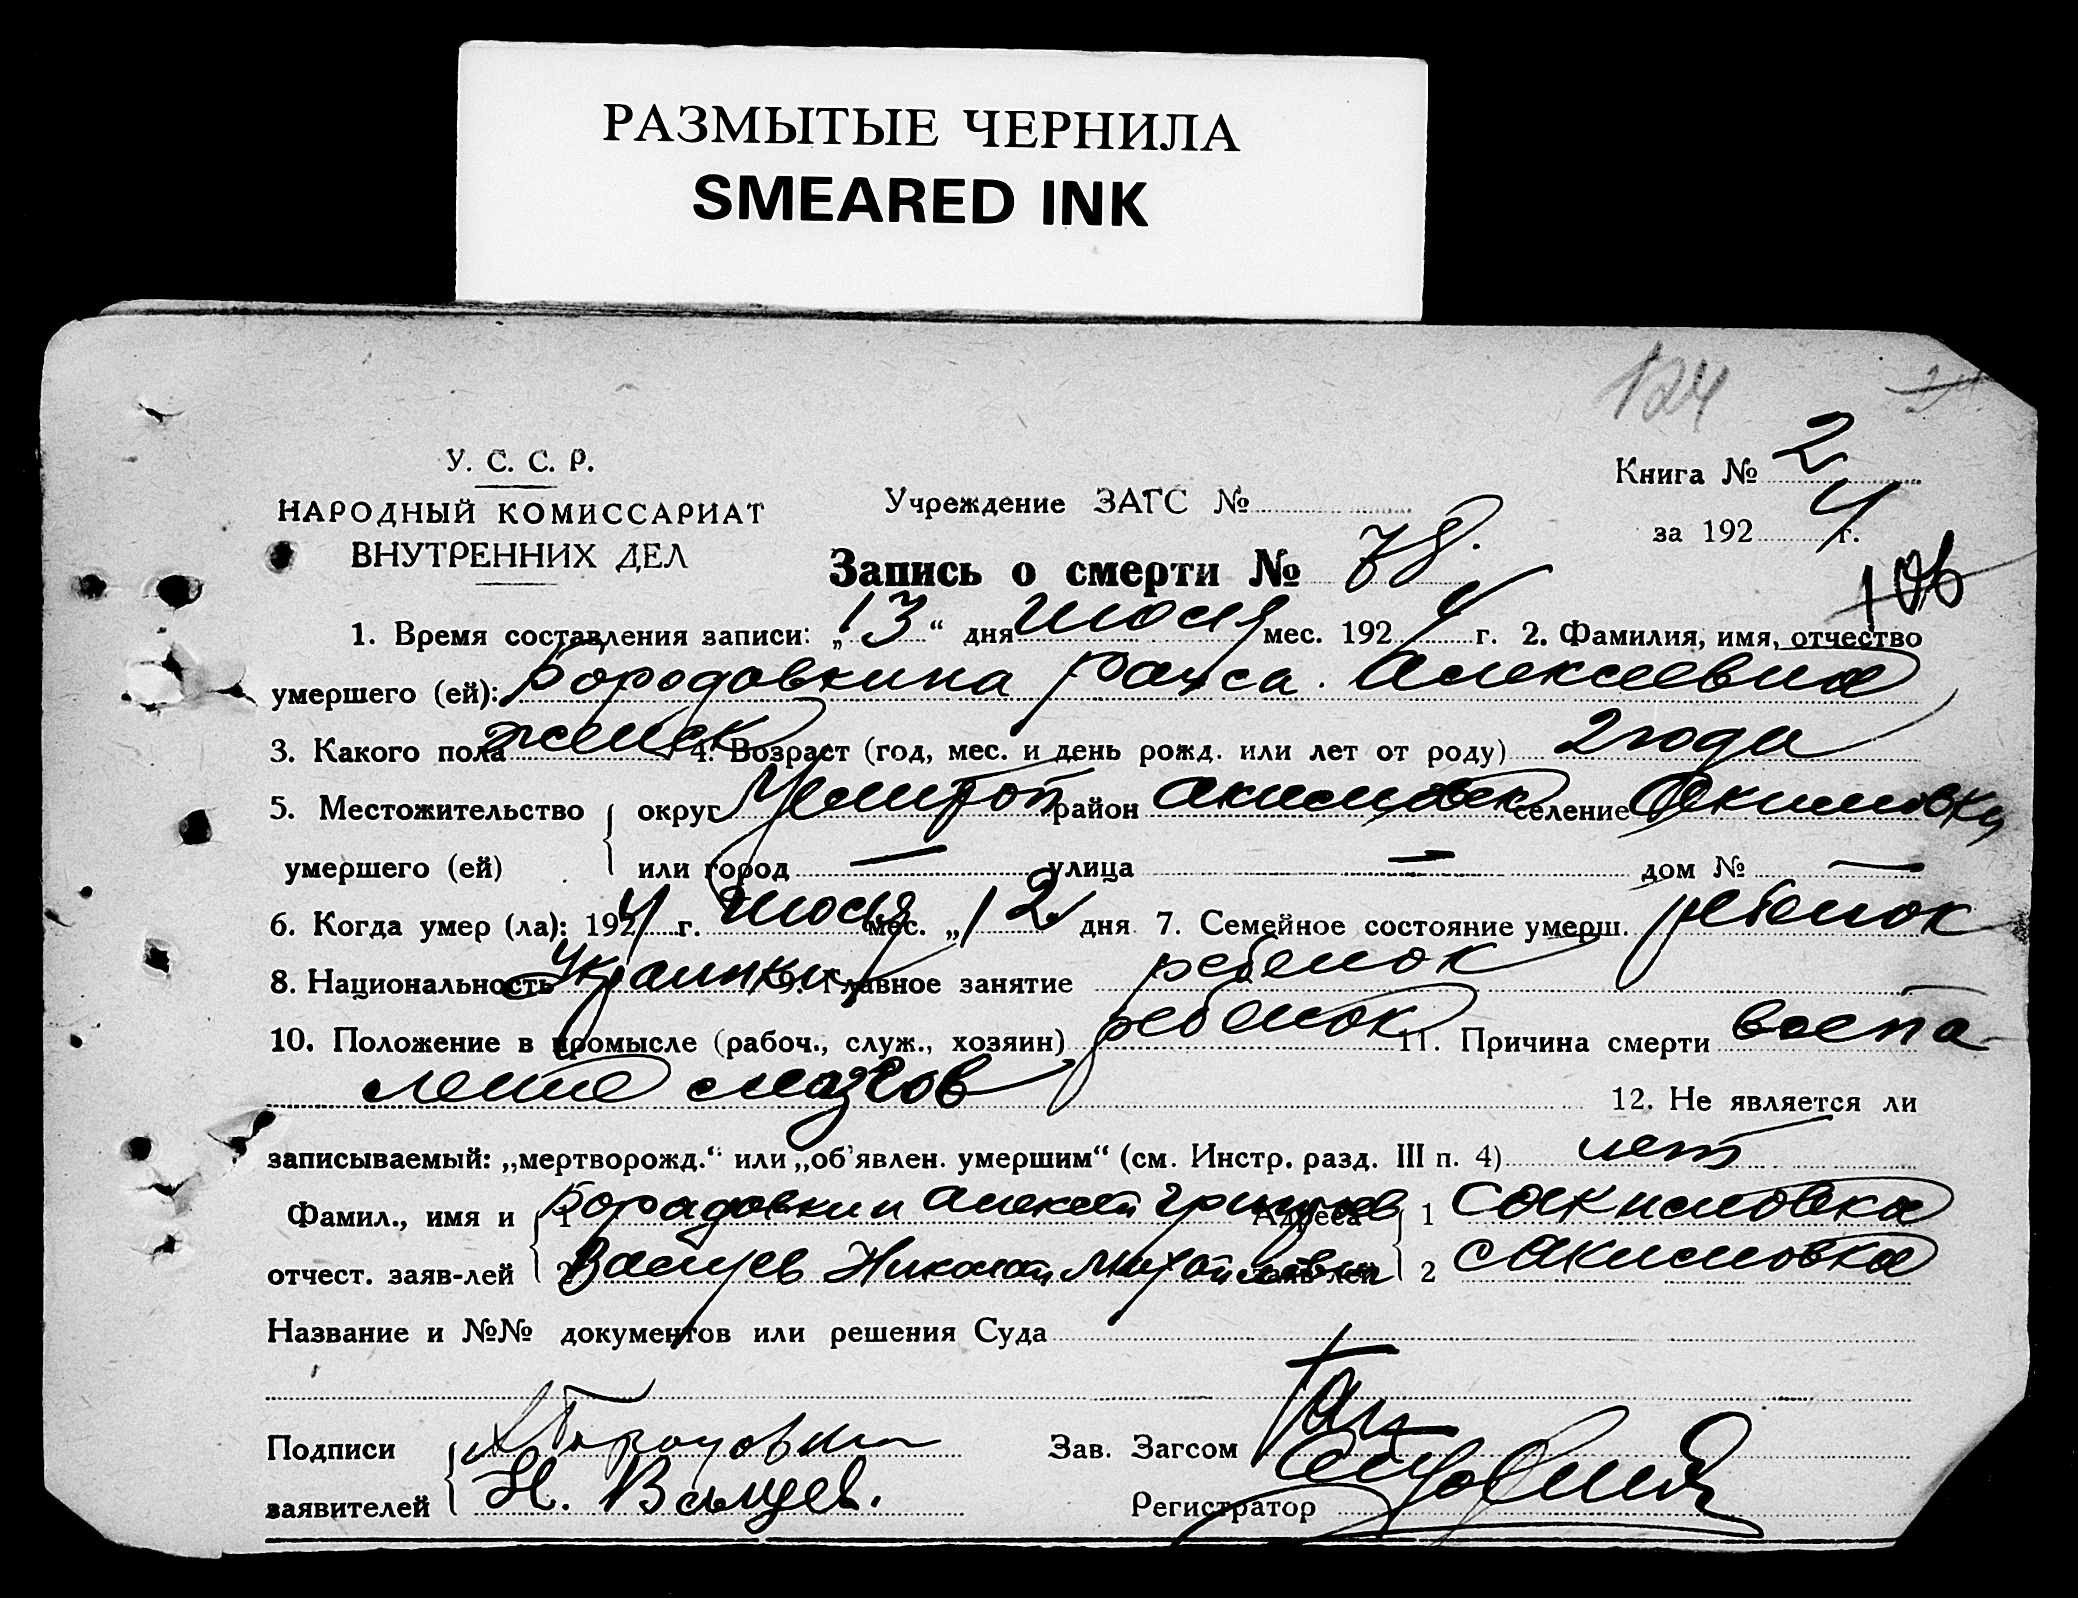 РАЗМЫТЫЕ ЧЕРНИЛА
SMEARED INK
124
У. С. С. Р.
НАРОДНЫЙ КОМИССАРИАТ
ВНУТРЕННИХ ДЕЛ
Учреждение ЗАГС №
Книга № 2
за 1924 г.
Запись о смерти № 78.
106
1. Время составления записи: „13“ дня июля мес. 1924 г. 2. Фамилия, имя, отчество
умершего (ей): Бородовкина Раиса Алексеевна
3. Какого пола женск 4. Возраст (год, мес. и день рожд. или лет от роду) 2 года
5. Местожительство округ Мелитоп район Акимовск селение Акимовка
умершего (ей) или город — улица — дом № —
6. Когда умер (ла): 1924 г. июля мес. „12 дня 7. Семейное состояние умерш. ребенок
8. Национальность Украинка 9. Главное занятие ребенок
10. Положение в промысле (рабоч., служ., хозяин) ребенок 11. Причина смерти воспа-
ление мозгов 12. Не является ли
записываемый: „мертворожд.“ или „об’явлен. умершим“ (см. Инстр. разд. III п. 4) нет
Фамил., имя и 1 Бородовкин Алексей Адреса 1 с Акимовка
отчест. заяв-лей 2 Николай Михайлович заяв-лей 2 с Акимовка
Название и №№ документов или решения Суда
Подписи Зав. Загсом
заявителей Н. Регистратор